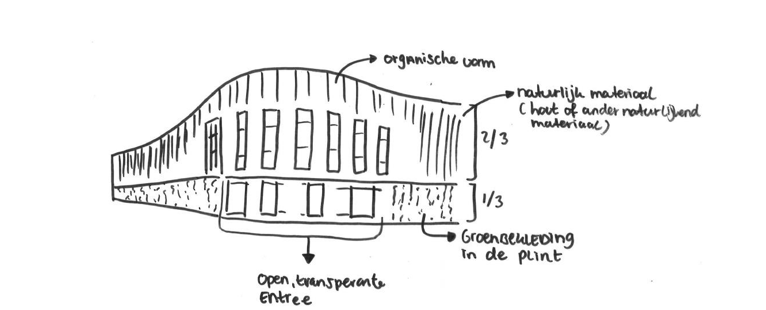 organische vorm
natuurlijk materiaal
(hout of ander natuurlijkend
materiaal)
2/3
1/3
Groenbekleding
in de plint
Open, transperante
Entree